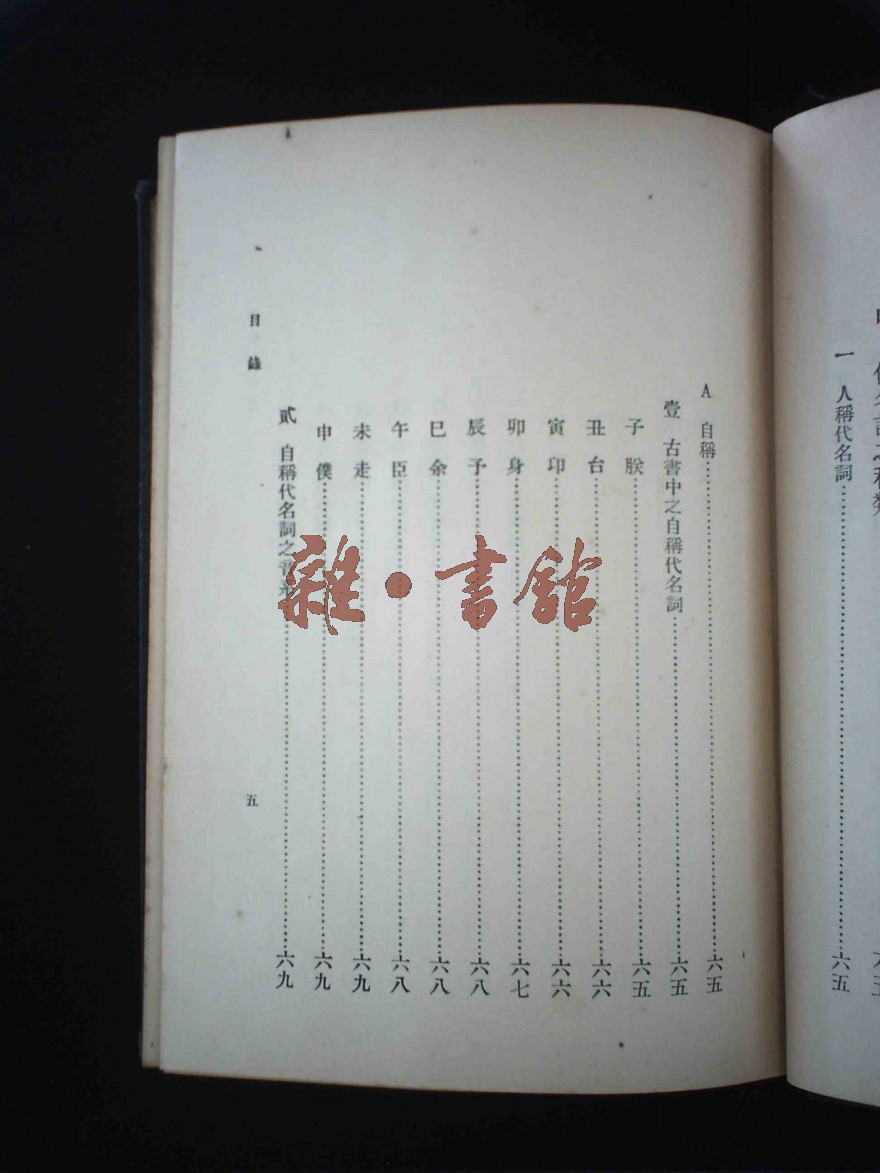 一 人稱代名詞……六五
A 自稱……六五
壹 古書中之自稱代名詞……六五
子 朕……六五
丑 台……六六
寅 卬……六六
卯 身……六七
辰 予……六八
巳 余……六八
午 臣……六八
未 走……六九
申 僕……六九
貳 自稱代名詞之……六九
目錄
五
雜·書館